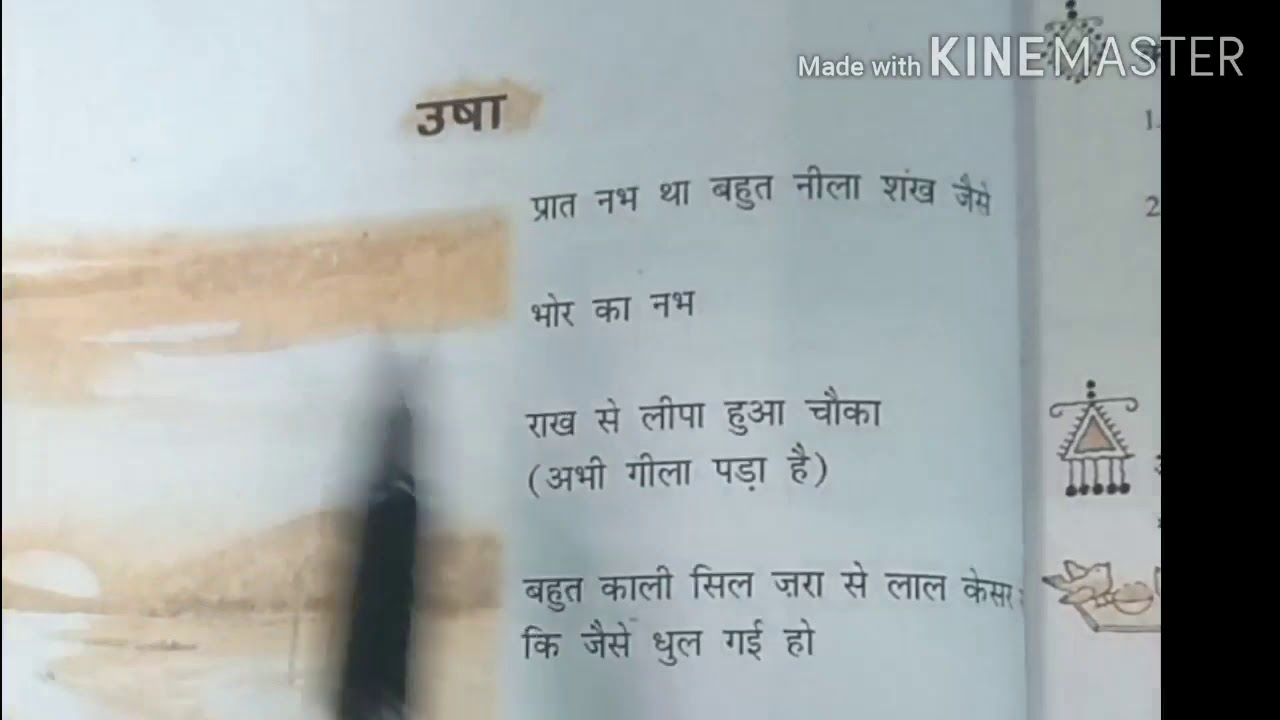 Made with KINEMASTER
उषा
प्रात नभ था बहुत नीला शंख जैसे
भोर का नभ
राख से लीपा हुआ चौका
(अभी गीला पड़ा है)
बहुत काली सिल ज़रा से लाल केसर
कि जैसे धुल गई हो
1.
2